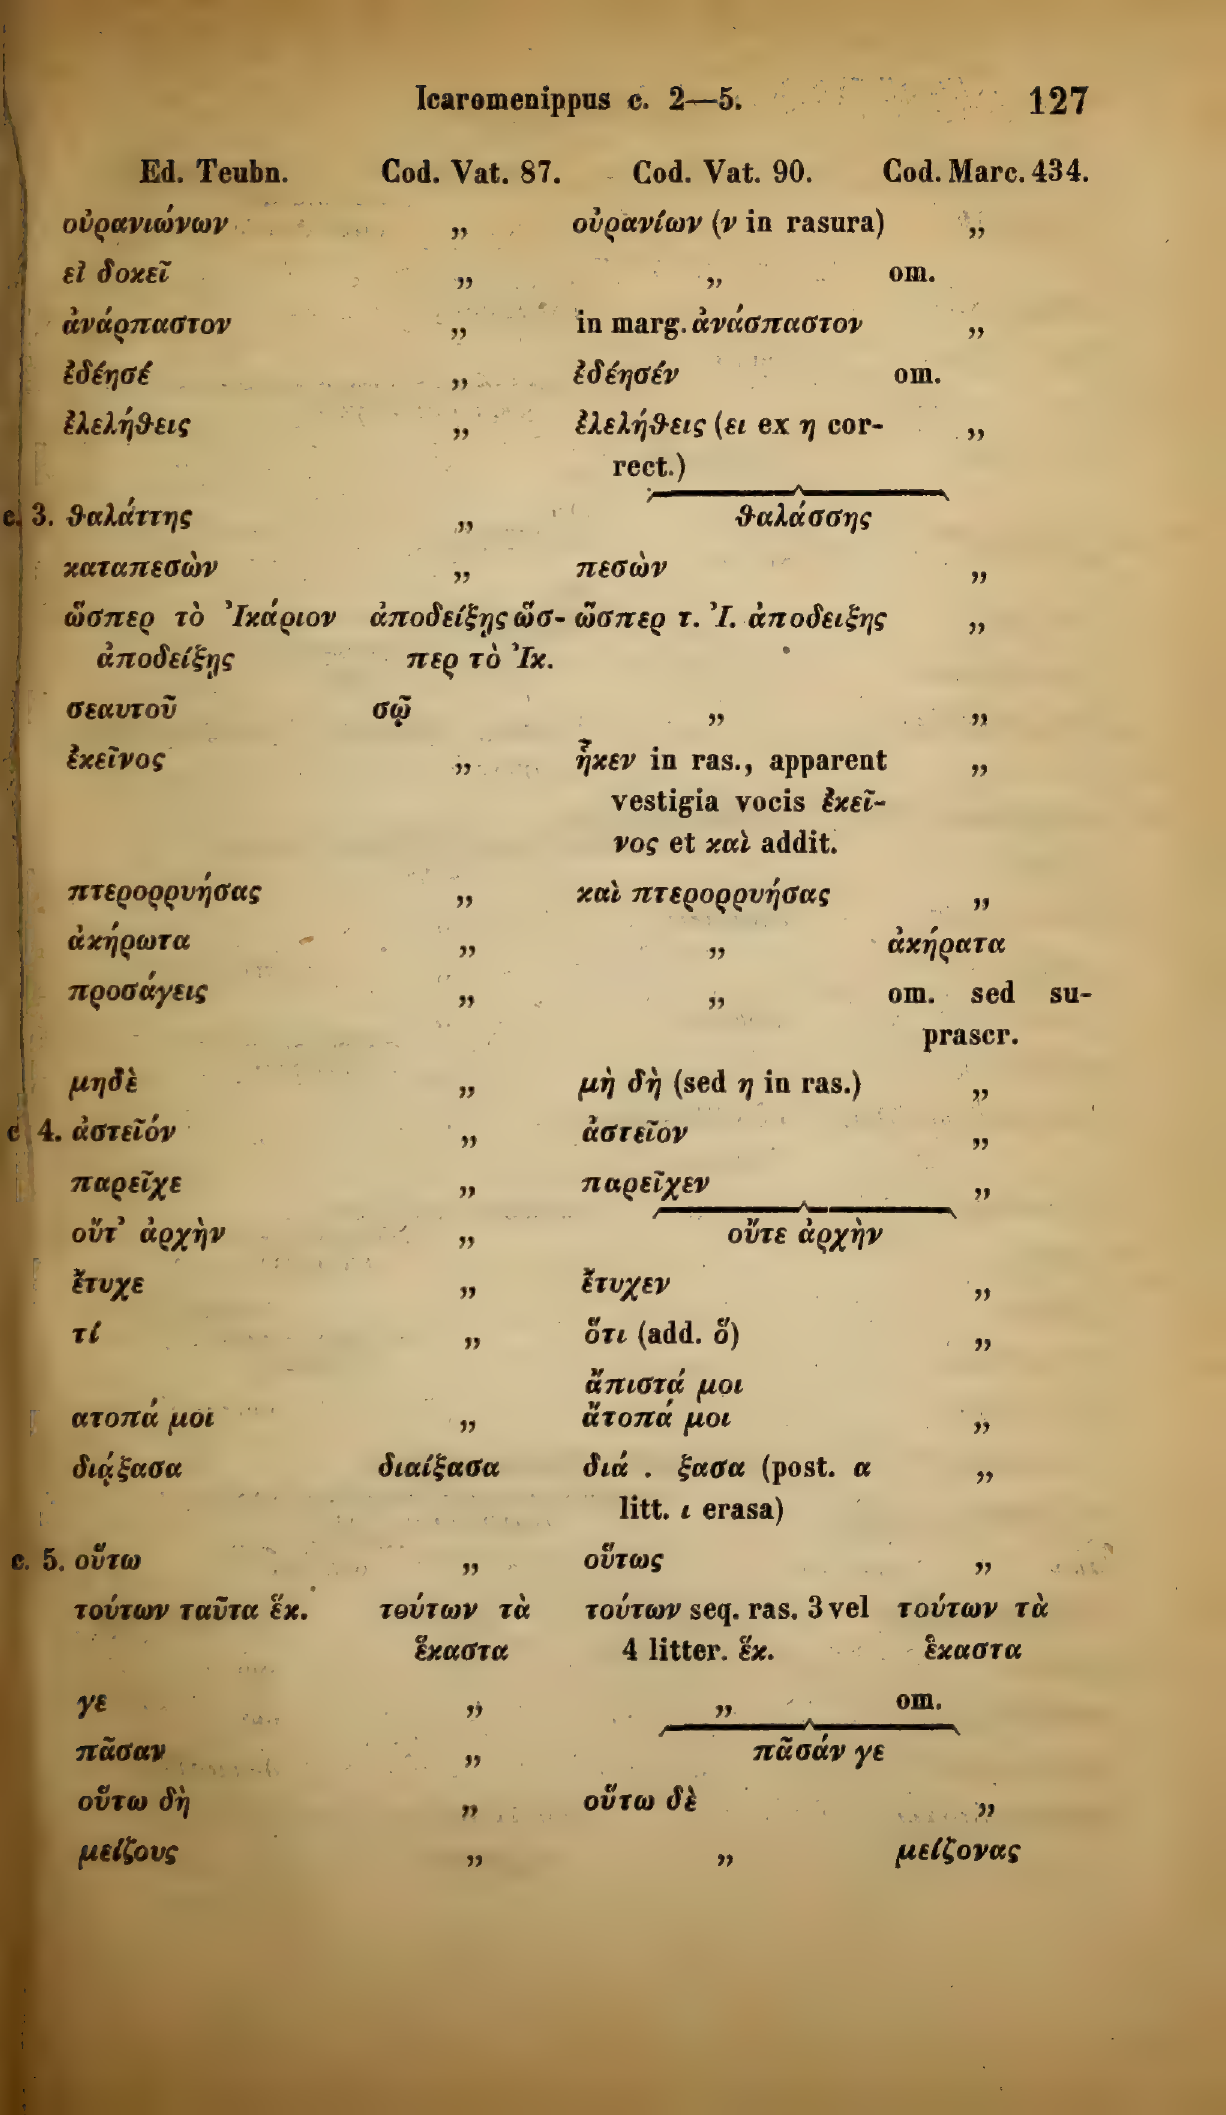 Icaromenippus c. 2—5. 127
Ed. Teubn. Cod. Vat. 87. Cod. Vat. 90. Cod. Marc. 434.
οὐρανιώνων „ οὐρανίων (ν in rasura) „
εἰ δοκεῖ „ „ om.
ἀνάρπαστον „ in marg. ἀνάσπαστον „
ἐδέησέ „ ἐδέησέν om.
ἐλελήθεις „ ἐλελήθεις (ει ex η cor- „
rect.)
c. 3. θαλάττης „ θαλάσσης
καταπεσὼν „ πεσὼν „
ὥσπερ τὸ Ἰκάριον ἀποδείξῃς ὥσ- ὥσπερ τ. Ἰ. ἀποδειξης „
ἀποδείξῃς περ τὸ Ἰκ.
σεαυτοῦ σῷ „ „
ἐκεῖνος „ ἧκεν in ras., apparent „
vestigia vocis ἐκεῖ-
νος et καὶ addit.
πτερορρυήσας „ καὶ πτερορρυήσας „
ἀκήρωτα „ „ ἀκήρατα
προσάγεις „ „ om. sed su-
prascr.
μηδὲ „ μὴ δὴ (sed η in ras.) „
c 4. ἀστεῖόν „ ἀστεῖον „
παρεῖχε „ παρεῖχεν „
οὔτ᾽ ἀρχὴν „ οὔτε ἀρχὴν
ἔτυχε „ ἔτυχεν „
τί „ ὅτι (add. ὅ) „
ἄπιστά μοι
ατοπά μοι „ ἄτοπά μοι „
διᾴξασα διαίξασα διά . ξασα (post. α „
litt. ι erasa)
c. 5. οὕτω „ οὕτως „
τούτων ταῦτα ἕκ. τούτων τὰ τούτων seq. ras. 3 vel τούτων τὰ
ἕκαστα 4 litter. ἕκ. ἕκαστα
γε „ „ om.
πᾶσαν „ πᾶσάν γε
οὕτω δὴ „ οὕτω δὲ „
μείζους „ „ μείζονας